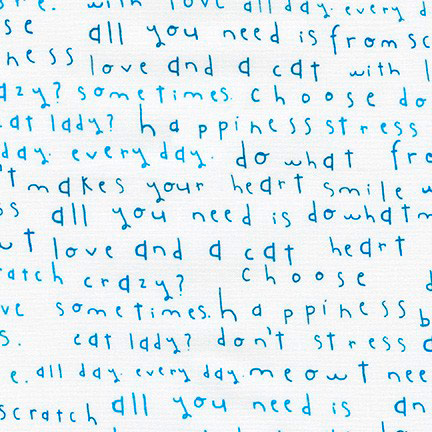 e. with love all day. every d
se all you need is from sc
ness love and a cat with l
azy? sometimes. choose do
at lady? happiness stress
day. every day. do what fro
't makes your heart smile w
ss all you need is do what m
wt love and a cat heart
ratch crazy? choose d
ve sometimes. happiness b
s. cat lady? don't stress d
e. all day. every day. meowt nee
scratch all you need is an